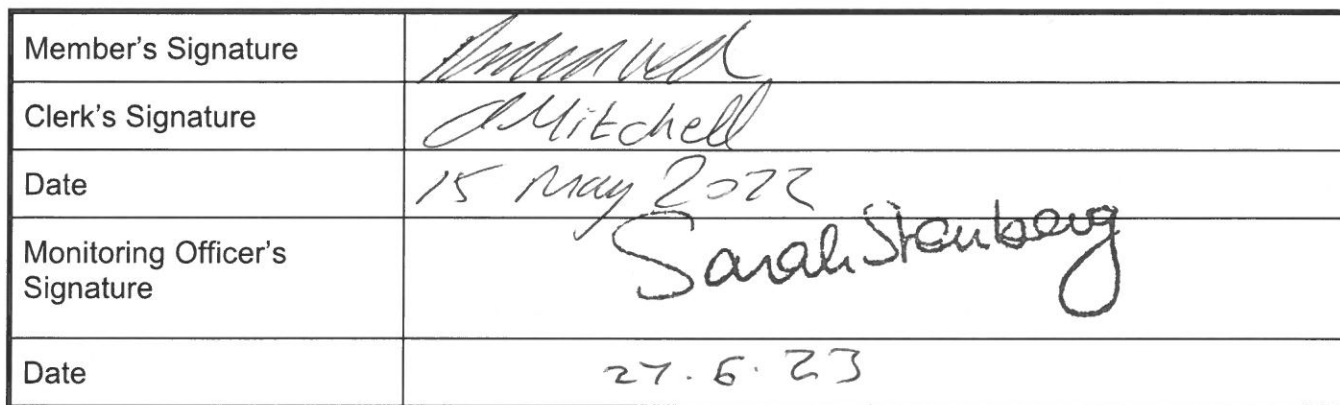 Member's Signature
Clerk's Signature
Mitchell
Date
15 May 2022
Monitoring Officer's
Signature
Sarah Stenberg
Date
27.6.23